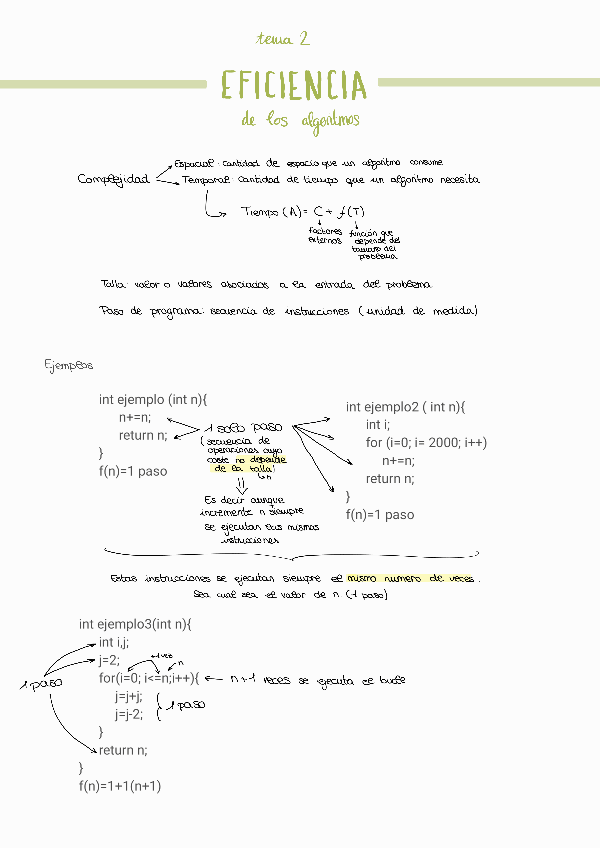 tema 2
EFICIENCIA
de los algoritmos
Complejidad
Espacial: cantidad de espacio que un algoritmo consume
Temporal: cantidad de tiempo que un algoritmo necesita
Tiempo (A) = C + f(T)
factores externos
función que depende del tamaño del problema
Talla: valor o valores asociados a la entrada del problema
Paso de programa: secuencia de instrucciones (unidad de medida)
Ejemplos
int ejemplo (int n){
n+=n;
return n;
}
f(n)=1 paso
1 solo paso
(secuencia de
operaciones cuyo
coste no depende
de la talla)
n
Es decir aunque
incremente n siempre
se ejecutan las mismas
instrucciones
int ejemplo2 ( int n){
int i;
for (i=0; i= 2000; i++)
n+=n;
return n;
}
f(n)=1 paso
Estas instrucciones se ejecutan siempre el mismo numero de veces.
Sea cual sea el valor de n (1 paso)
int ejemplo3(int n){
int i,j;
j=2;
+1 vez
n
for(i=0; i<=n;i++){ ← n+1 veces se ejecuta el bucle
1 paso
j=j+j;
j=j-2;
1 paso
}
return n;
}
f(n)=1+1(n+1)